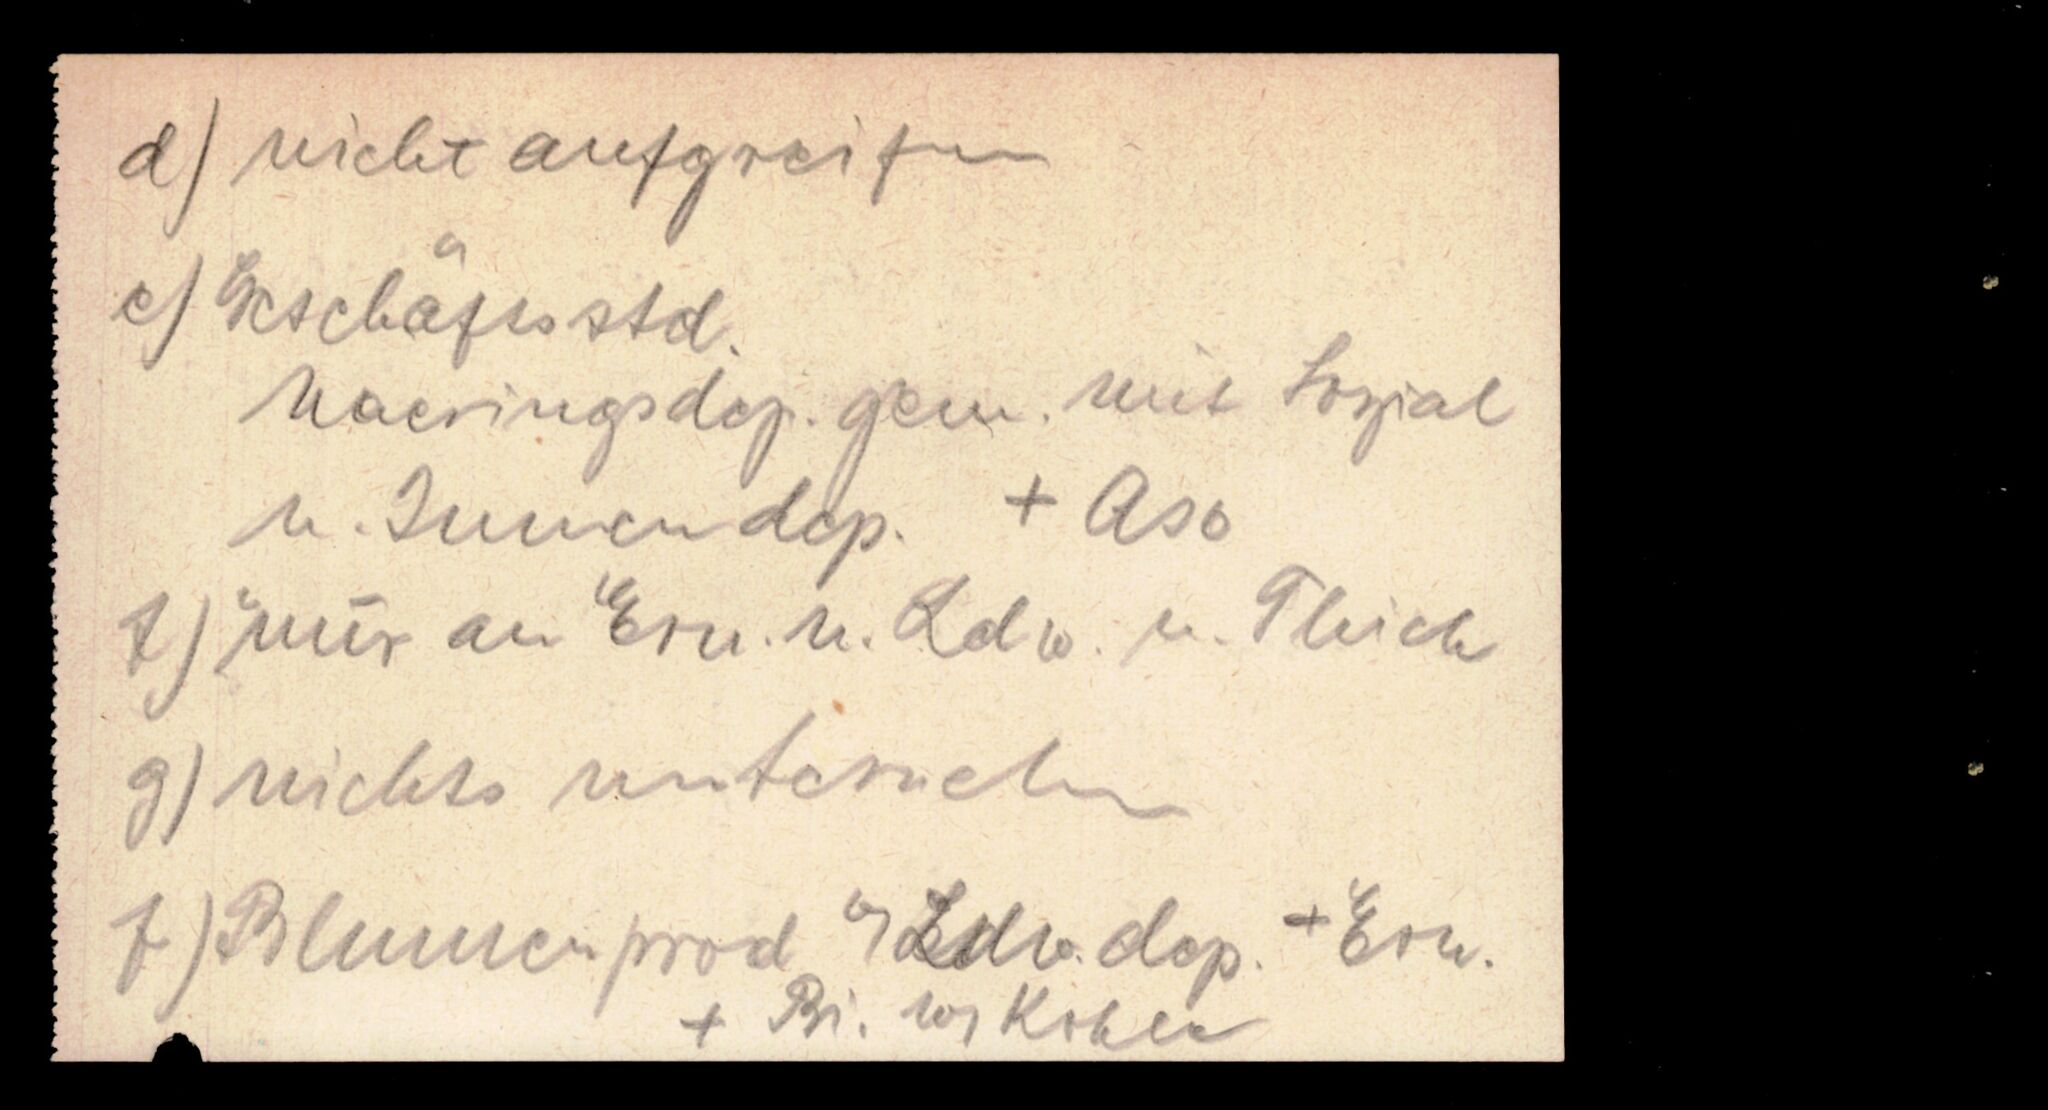 d) nicht aufgreifen
e) Geschäftsstd.
Naeringsdep. gem. mit Sozial
u. Innendep. + Aso
f) nur an Ern. u. Ldw. u.
g) nichts unternehmen
f) Blumenprod Ldw. dep. + Ern.
+ Bi. Kohlen